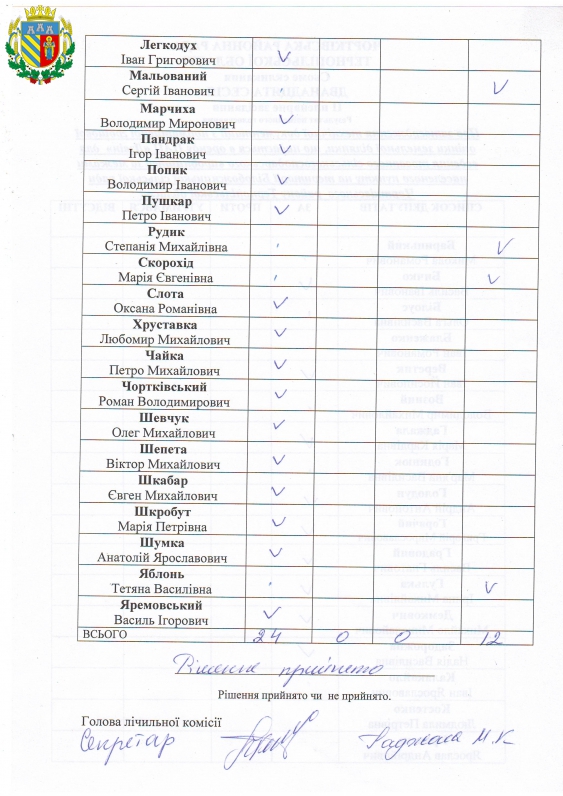 Легкодух
Іван Григорович ✓
Мальований
Сергій Іванович ✓
Марчиха
Володимир Миронович ✓
Пандрак
Ігор Іванович ✓
Попик
Володимир Іванович ✓
Пушкар
Петро Іванович ✓
Рудик
Степанія Михайлівна ✓
Скорохід
Марія Євгенівна ✓
Слота
Оксана Романівна ✓
Хруставка
Любомир Михайлович ✓
Чайка
Петро Михайлович ✓
Чортківський
Роман Володимирович ✓
Шевчук
Олег Михайлович ✓
Шепета
Віктор Михайлович ✓
Шкабар
Євген Михайлович ✓
Шкробут
Марія Петрівна ✓
Шумка
Анатолій Ярославович ✓
Яблонь
Тетяна Василівна ✓
Яремовський
Василь Ігорович ✓
ВСЬОГО 24 0 0 12
Рішення прийнято
Рішення прийнято чи не прийнято.
Голова лічильної комісії
Секретар М.К